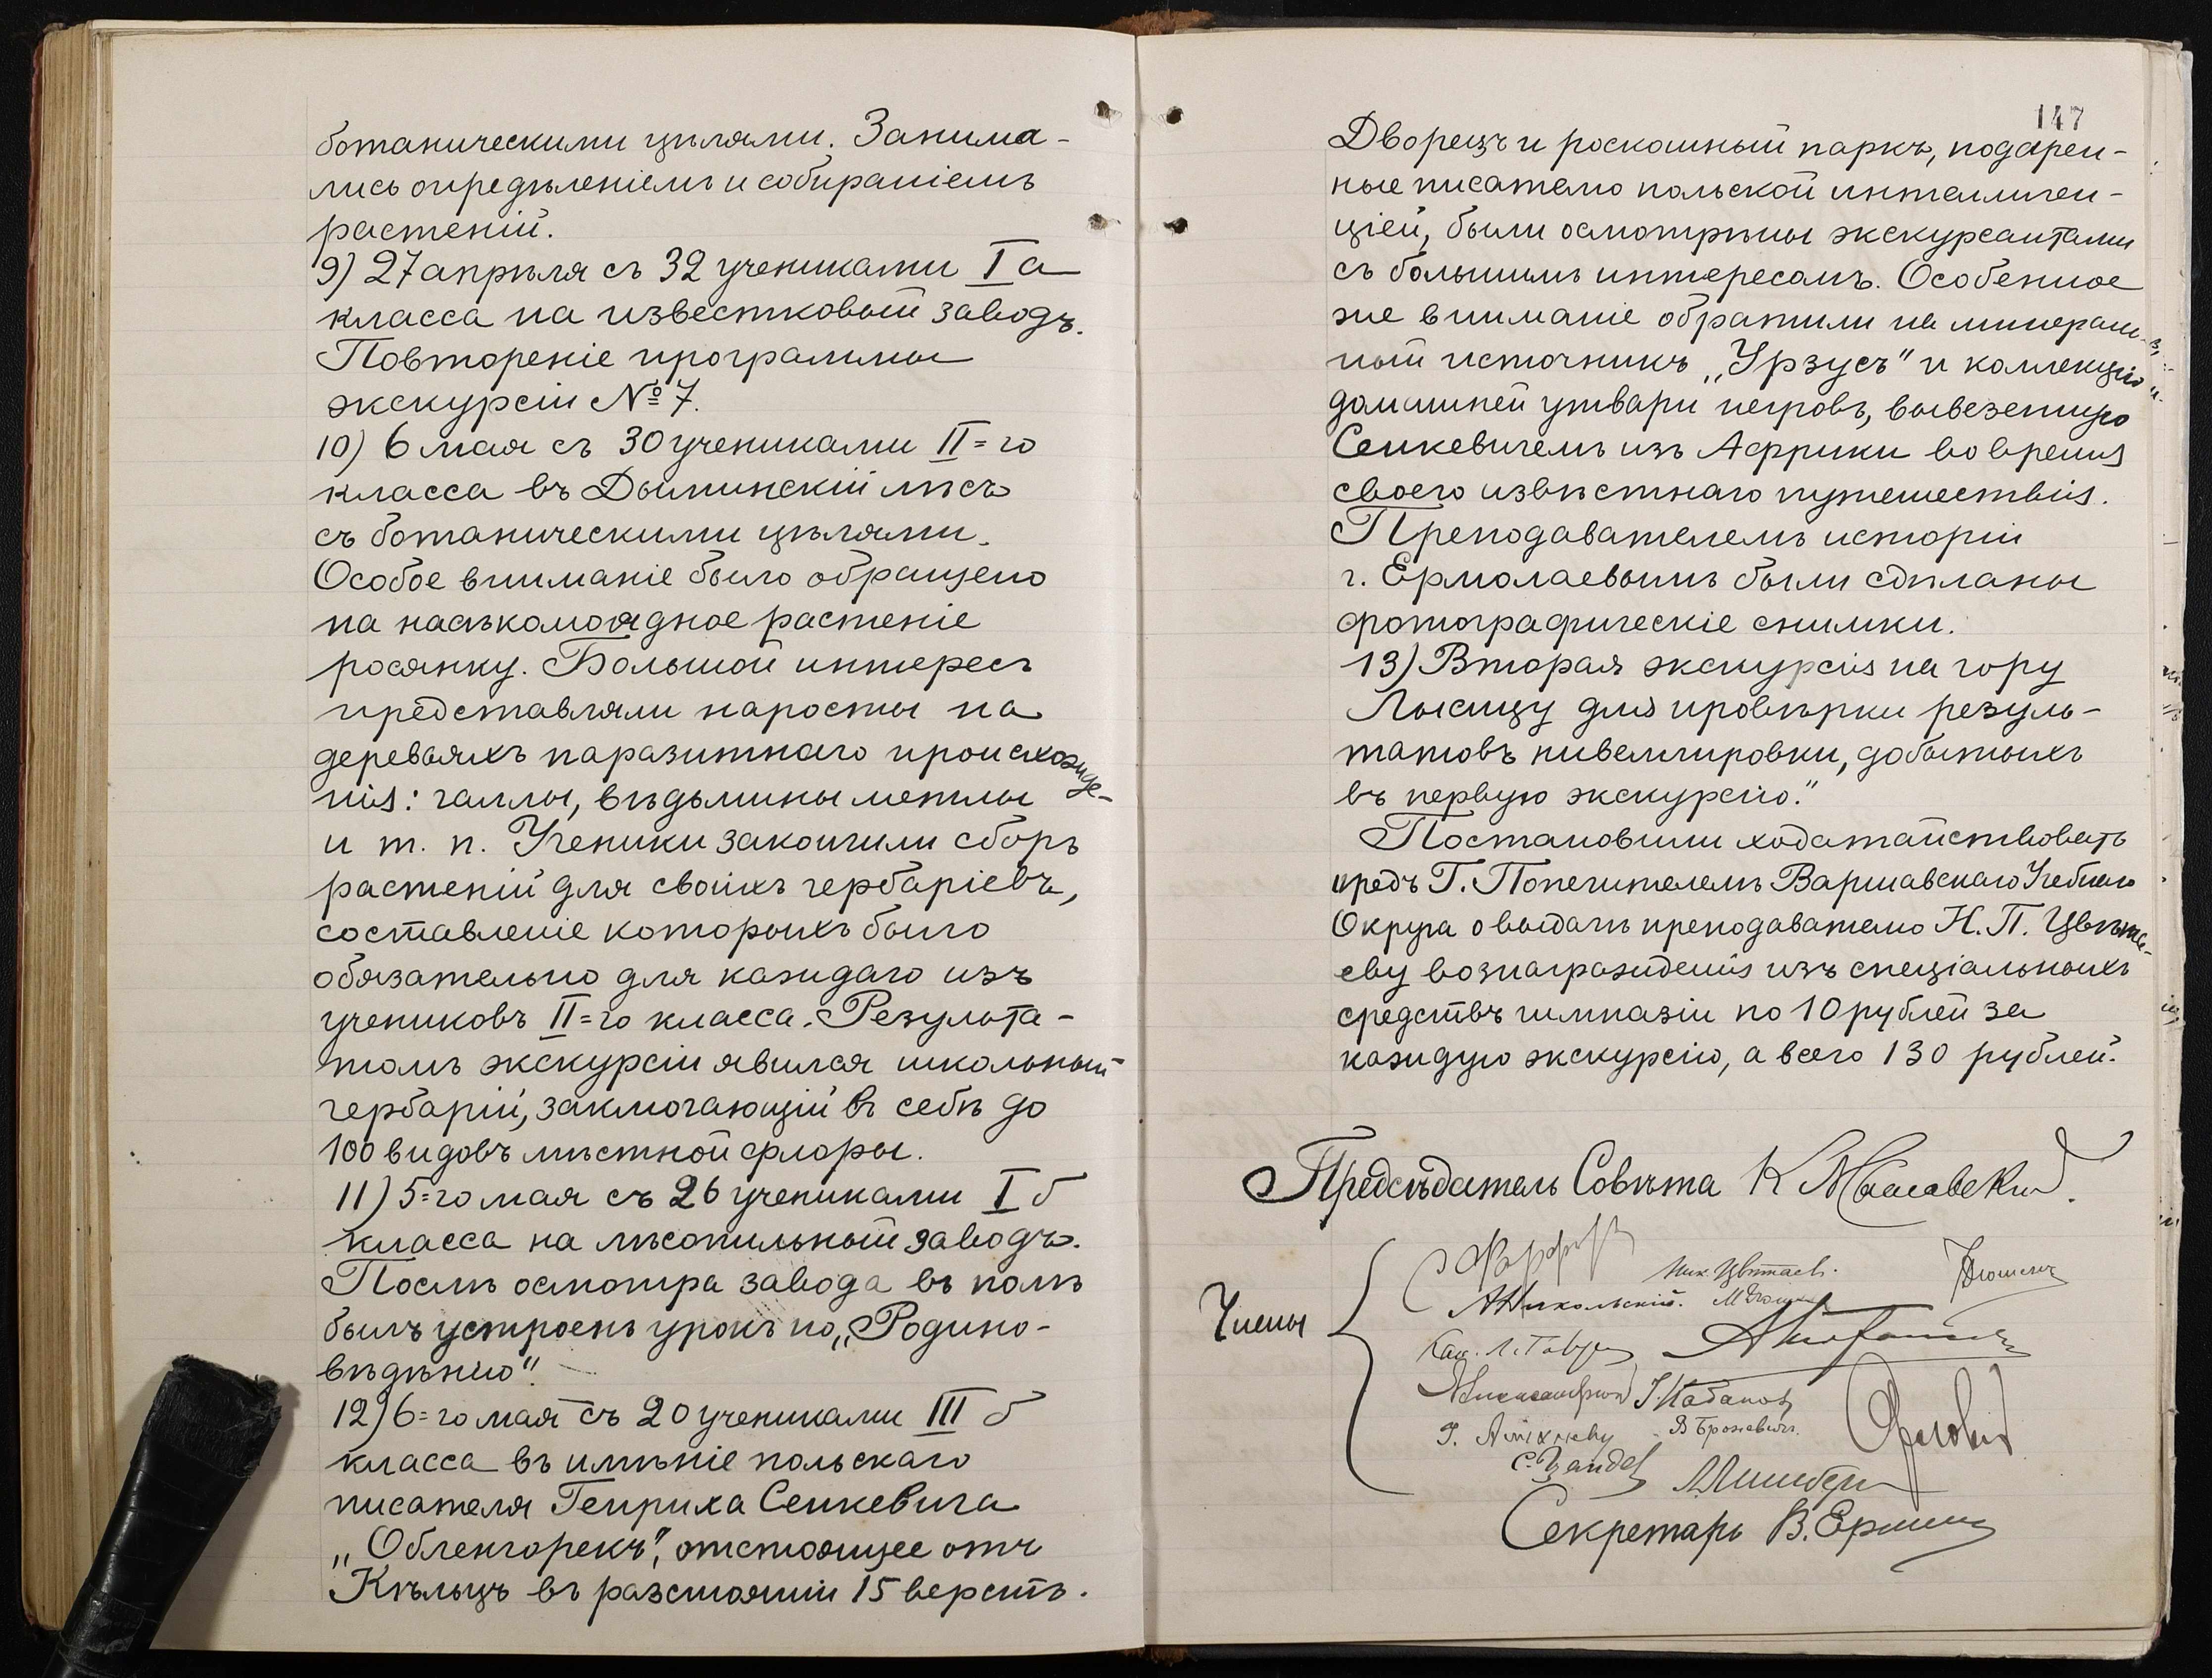 ботаническими цѣлями. Занима-
лись опредѣленіемъ и собираніемъ
растеній.
9) 27 апрѣля съ 32 учениками I а
класса на известковый заводъ.
Повтореніе программы
экскурсіи № 7.
10) 6 мая съ 30 учениками II=го
класса въ Дыминскій лѣсъ
съ ботаническими цѣлями.
Особое вниманіе было обращено
на насѣкомоядное растеніе
росянку. Большой интересъ
представляли наросты на
деревьяхъ паразитнаго происхожде-
нія: галлы, вѣдьмины метлы
и т. п. Ученики закончили сборъ
растеній для своихъ гербаріевъ,
составленіе которыхъ было
обязательно для каждаго изъ
учениковъ II=го класса. Результа-
томъ экскурсіи явился школьный
гербарій, заключающій въ себѣ до
100 видовъ мѣстной флоры.
11) 5=го мая съ 26 учениками I б
класса на лѣсопильный заводъ.
Послѣ осмотра завода въ полѣ
былъ устроенъ урокъ по „Родино-
вѣдѣнію".
12) 6=го мая съ 20 учениками III б
класса въ имѣніе польскаго
писателя Генриха Сенкевича
„Обленгорекъ", отстоящее отъ
Кѣльцъ въ разстояніи 15 верстъ.
147
Дворецъ и роскошный паркъ, подарен-
ные писателю польской интеллиген-
ціей, были осмотрѣны экскурсантами
съ большимъ интересомъ. Особенное
же вниманіе обратили на минераль-
ный источникъ „Урзусъ" и коллекцію
домашней утвари негровъ, вывезенную
Сенкевичемъ изъ Африки во время
своего извѣстнаго путешествія.
Преподавателемъ исторіи
г. Ермолаевымъ были сдѣланы
фотографическіе снимки.
13) Вторая экскурсія на гору
Лысицу для провѣрки резуль-
татовъ нивеллировки, добытыхъ
въ первую экскурсію."
Постановили ходатайствовать
предъ Г. Попечителемъ Варшавскаго Учебнаго
Округа о выдачѣ преподавателю Н. П. Цвѣта-
еву вознагражденія изъ спеціальныхъ
средствъ гимназіи по 10 рублей за
каждую экскурсію, а всего 130 рублей.
Предсѣдатель Совѣта К
Ник. Цвѣтаевъ.
Члены
А Никольскій.
В Броневичъ.
Секретарь В.